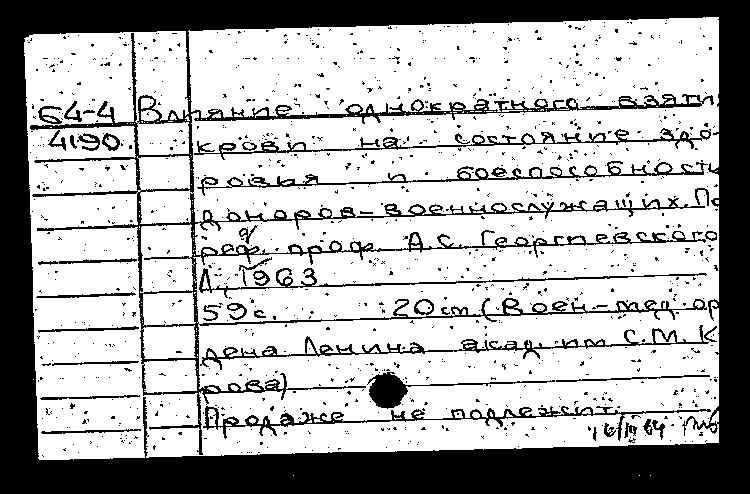 64-4 Влияние однократного взяти
4190 крови на состояние здо-
ровья и боеспособность
доноров-военнослужащих. По
реф. проф. А.С. Георгиевского
Л., 1963.
59с. 20см (Воен-мед. ор
дена Ленина акад. им С.М. К
рова)
Продаже не подлежит.